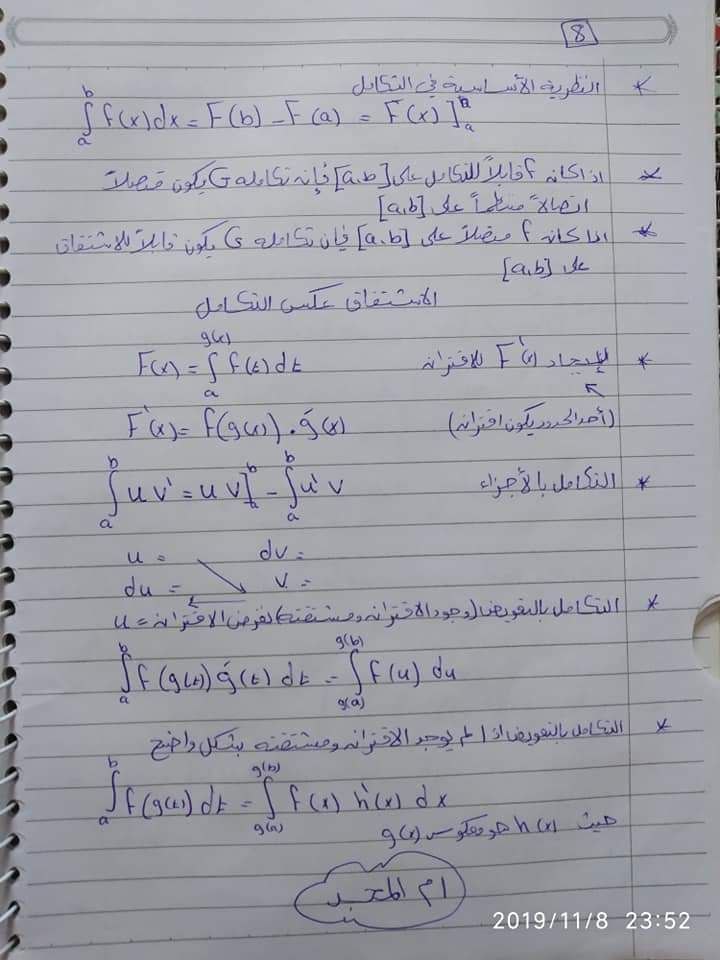 8
* النظرية الأساسية في التكامل
∫ₐᵇ f(x) dx = F(b) - F(a) = F(x)]ₐᵇ
* اذا كانه f قابلاً للتكامل على [a,b] فإنه تكامله G يكون متصلاً
اتصالاً منتظماً على [a,b]
* اذا كانه f متصلاً على [a,b] فإن تكامله G يكون قابلاً للاشتقاق
على [a,b]
الاشتقاق عكس التكامل
* لإيجاد F'(x) للاقترانه F(x) = ∫ₐ^g(x) f(t) dt
(أحد الحدود يكون اقترانه) F'(x) = f(g(x)) . g'(x)
* التكامل بالأجزاء ∫ₐᵇ u v' = u v]ₐᵇ - ∫ₐᵇ u' v
u = dv =
du = v =
* التكامل بالتعويض (وجود الاقترانه ومشتقته) نفرض الاقترانه = u
∫ₐᵇ f(g(t)) g'(t) dt = ∫_g(a)^g(b) f(u) du
* التكامل بالتعويض اذا لم يوجد الاقترانه ومشتقته بشكل واضح
∫ₐᵇ f(g(t)) dt = ∫_g(a)^g(b) f(x) h'(x) dx
حيث h(x) هو معكوس g(x)
ام
2019/11/8 23:52